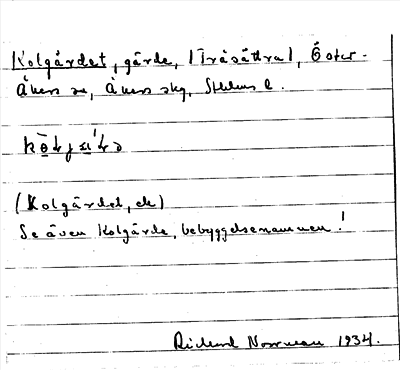 Kolgärdet, gärde, (Träsättra), Öster-
Åkers sn, Åkers skg, Sthlms l.
(Kolgärdet, ek)
Se även Kolgärde, bebyggelsenamnen!
Richard Norrman 1934.